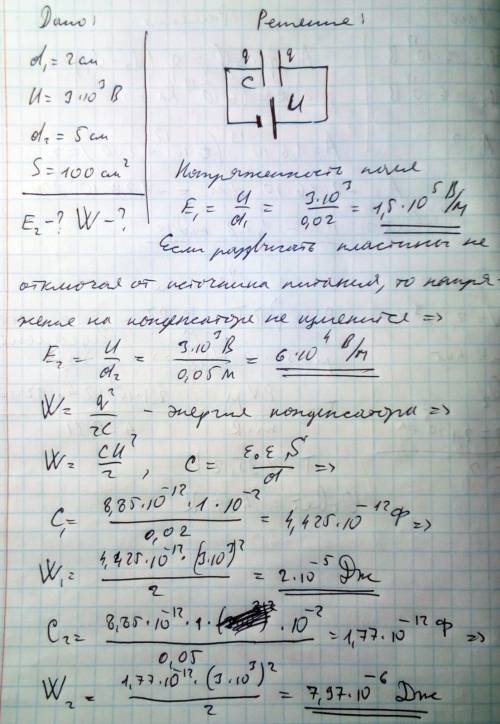 Дано:
Решение:
d₁ = 2 см
U = 3·10³ В
d₂ = 5 см
S = 100 см²
E₂ - ? W - ?
q q
C
U
Напряженность поля
E₁ = U/d₁ = 3·10³/0,02 = 1,5·10⁵ В/м
Если раздвигать пластины не
отключая от источника питания, то напря-
жение на конденсаторе не изменится =>
E₂ = U/d₂ = 3·10³ В/0,05 м = 6·10⁴ В/м
W = q²/2C - энергия конденсатора =>
W = CU²/2, C = ε₀ε S/d =>
C₁ = 8,85·10⁻¹²·1·10⁻²/0,02 = 4,425·10⁻¹² Ф =>
W₁ = 4,425·10⁻¹²·(3·10³)²/2 = 2·10⁻⁵ Дж
C₂ = 8,85·10⁻¹²·1·10⁻²/0,05 = 1,77·10⁻¹² Ф =>
W₂ = 1,77·10⁻¹²·(3·10³)²/2 = 7,97·10⁻⁶ Дж